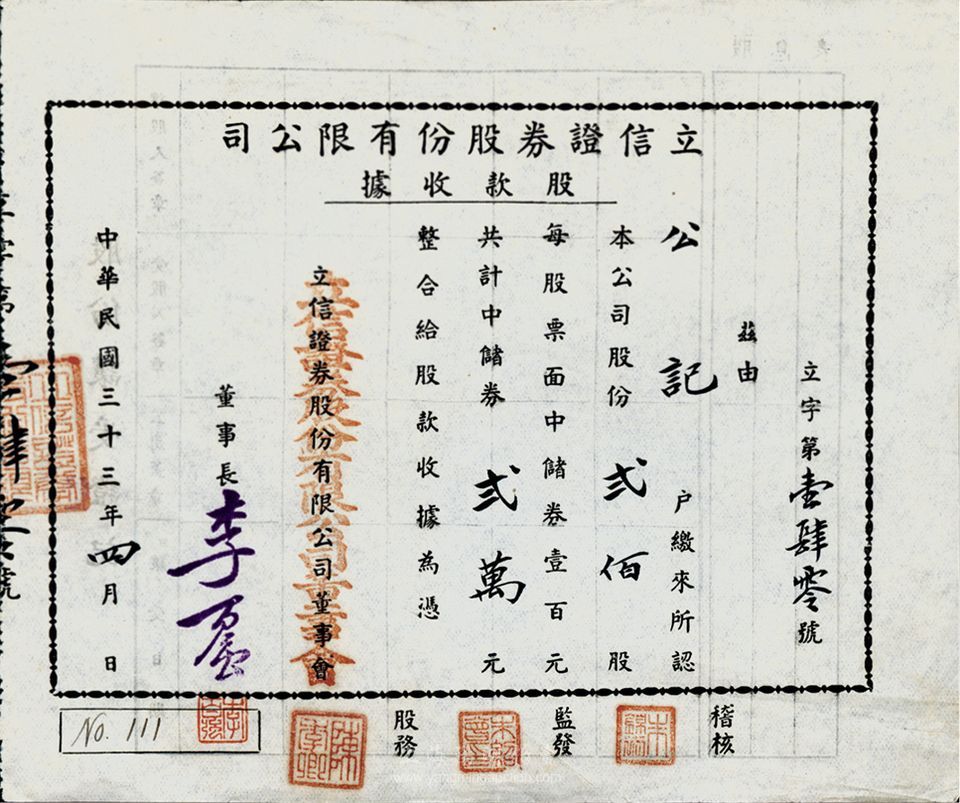 立信證券股份有限公司
股款收據
立字第壹肆零號
茲由
公記 戶繳來所認
本公司股份 弍佰 股
每股票面中儲券壹百元
共計中儲券 弍萬 元
整合給股款收據為憑
立信證券股份有限公司董事會
董事長
中華民國三十三年四月 日
稽核
監發
股務
No. 111